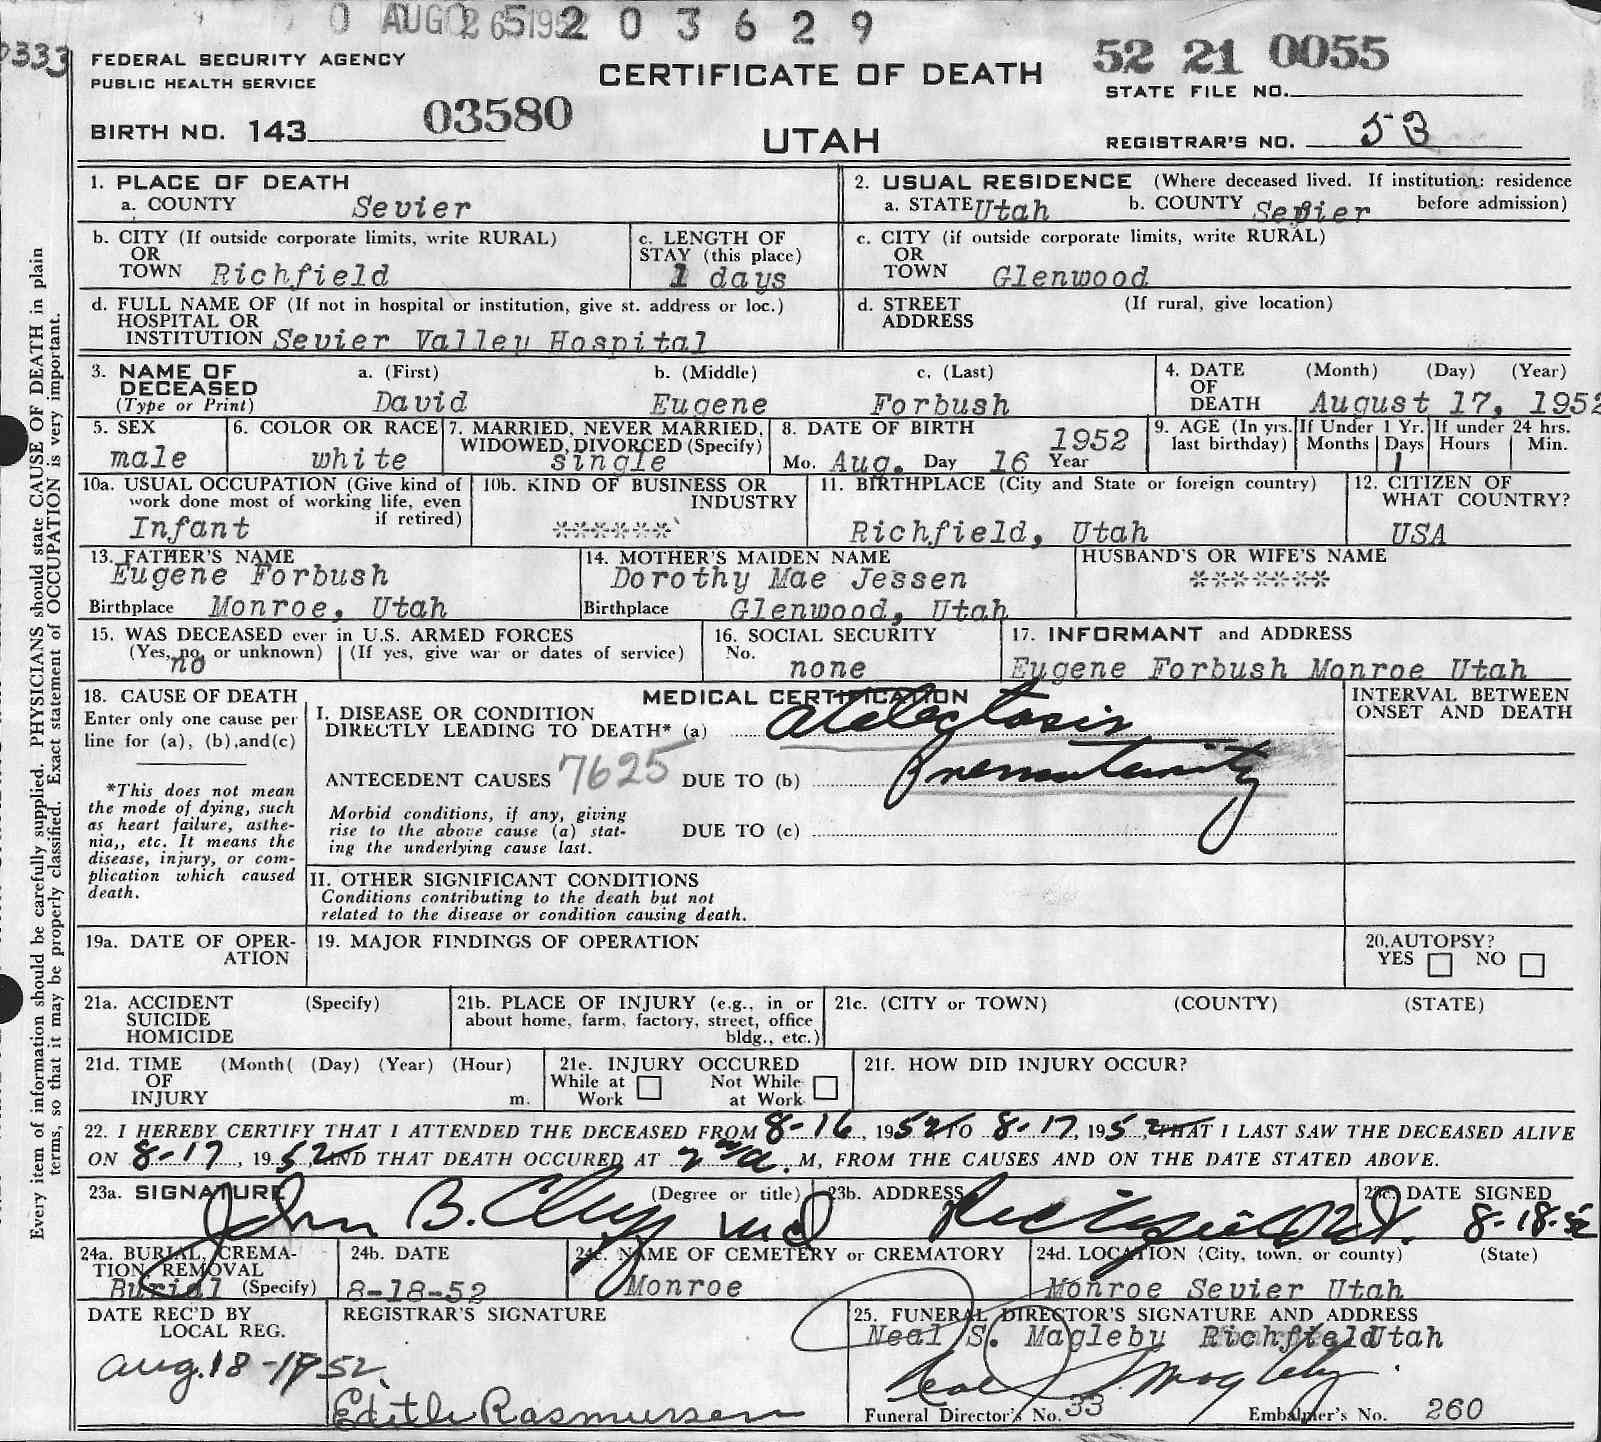 0 AUG 26 1952 203629
0333
FEDERAL SECURITY AGENCY
PUBLIC HEALTH SERVICE
CERTIFICATE OF DEATH
52 21 0055
STATE FILE NO.
BIRTH NO. 143 03580
UTAH
REGISTRAR'S NO. 53
1. PLACE OF DEATH
a. COUNTY Sevier
2. USUAL RESIDENCE (Where deceased lived. If institution: residence before admission)
a. STATE Utah b. COUNTY Sevier
b. CITY (If outside corporate limits, write RURAL)
OR
TOWN Richfield
c. LENGTH OF
STAY (this place)
1 days
c. CITY (if outside corporate limits, write RURAL)
OR
TOWN Glenwood
d. FULL NAME OF (If not in hospital or institution, give st. address or loc.)
HOSPITAL OR
INSTITUTION Sevier Valley Hospital
d. STREET (If rural, give location)
ADDRESS
3. NAME OF
DECEASED
(Type or Print)
a. (First) b. (Middle) c. (Last)
David Eugene Forbush
4. DATE (Month) (Day) (Year)
OF
DEATH August 17, 1952
5. SEX
male
6. COLOR OR RACE
white
7. MARRIED, NEVER MARRIED,
WIDOWED, DIVORCED (Specify)
single
8. DATE OF BIRTH 1952
Mo. Aug. Day 16 Year
9. AGE (In yrs. last birthday)
If Under 1 Yr. If under 24 hrs.
Months Days Hours Min.
1
10a. USUAL OCCUPATION (Give kind of
work done most of working life, even
if retired)
Infant
10b. KIND OF BUSINESS OR
INDUSTRY
******
11. BIRTHPLACE (City and State or foreign country)
Richfield, Utah
12. CITIZEN OF
WHAT COUNTRY?
USA
13. FATHER'S NAME
Eugene Forbush
Birthplace Monroe, Utah
14. MOTHER'S MAIDEN NAME
Dorothy Mae Jessen
Birthplace Glenwood, Utah
HUSBAND'S OR WIFE'S NAME
*******
15. WAS DECEASED ever in U.S. ARMED FORCES
(Yes, no, or unknown) (If yes, give war or dates of service)
no
16. SOCIAL SECURITY
No.
none
17. INFORMANT and ADDRESS
Eugene Forbush Monroe Utah
18. CAUSE OF DEATH
Enter only one cause per
line for (a), (b), and (c)
*This does not mean
the mode of dying, such
as heart failure, asthe-
nia,, etc. It means the
disease, injury, or com-
plication which caused
death.
MEDICAL CERTIFICATION
I. DISEASE OR CONDITION
DIRECTLY LEADING TO DEATH* (a) atelectasis
ANTECEDENT CAUSES 7625 DUE TO (b) Prematurity
Morbid conditions, if any, giving
rise to the above cause (a) stat-
ing the underlying cause last.
DUE TO (c)
II. OTHER SIGNIFICANT CONDITIONS
Conditions contributing to the death but not
related to the disease or condition causing death.
INTERVAL BETWEEN
ONSET AND DEATH
19a. DATE OF OPER-
ATION
19. MAJOR FINDINGS OF OPERATION
20. AUTOPSY?
YES NO
21a. ACCIDENT (Specify)
SUICIDE
HOMICIDE
21b. PLACE OF INJURY (e.g., in or
about home, farm, factory, street, office
bldg., etc.)
21c. (CITY or TOWN) (COUNTY) (STATE)
21d. TIME (Month( (Day) (Year) (Hour)
OF
INJURY m.
21e. INJURY OCCURED
While at Work Not While at Work
21f. HOW DID INJURY OCCUR?
22. I HEREBY CERTIFY THAT I ATTENDED THE DECEASED FROM 8-16, 1952 TO 8-17, 1952, THAT I LAST SAW THE DECEASED ALIVE
ON 8-17, 1952 AND THAT DEATH OCCURED AT 2 a. M, FROM THE CAUSES AND ON THE DATE STATED ABOVE.
23a. SIGNATURE (Degree or title)
John B. md
23b. ADDRESS
Richfield Ut.
23c. DATE SIGNED
8-18-52
24a. BURIAL, CREMA-
TION, REMOVAL
Burial (Specify)
24b. DATE
8-18-52
24c. NAME OF CEMETERY or CREMATORY
Monroe
24d. LOCATION (City, town, or county) (State)
Monroe Sevier Utah
DATE REC'D BY
LOCAL REG.
Aug. 18-1952.
REGISTRAR'S SIGNATURE
Edith Rasmussen
25. FUNERAL DIRECTOR'S SIGNATURE AND ADDRESS
Neal S. Magleby Richfield Utah
Neal S Magleby
Funeral Director's No. 33 Embalmer's No. 260
Every item of information should be carefully supplied. PHYSICIANS should state CAUSE OF DEATH in plain
terms, so that it may be properly classified. Exact statement of OCCUPATION is very important.